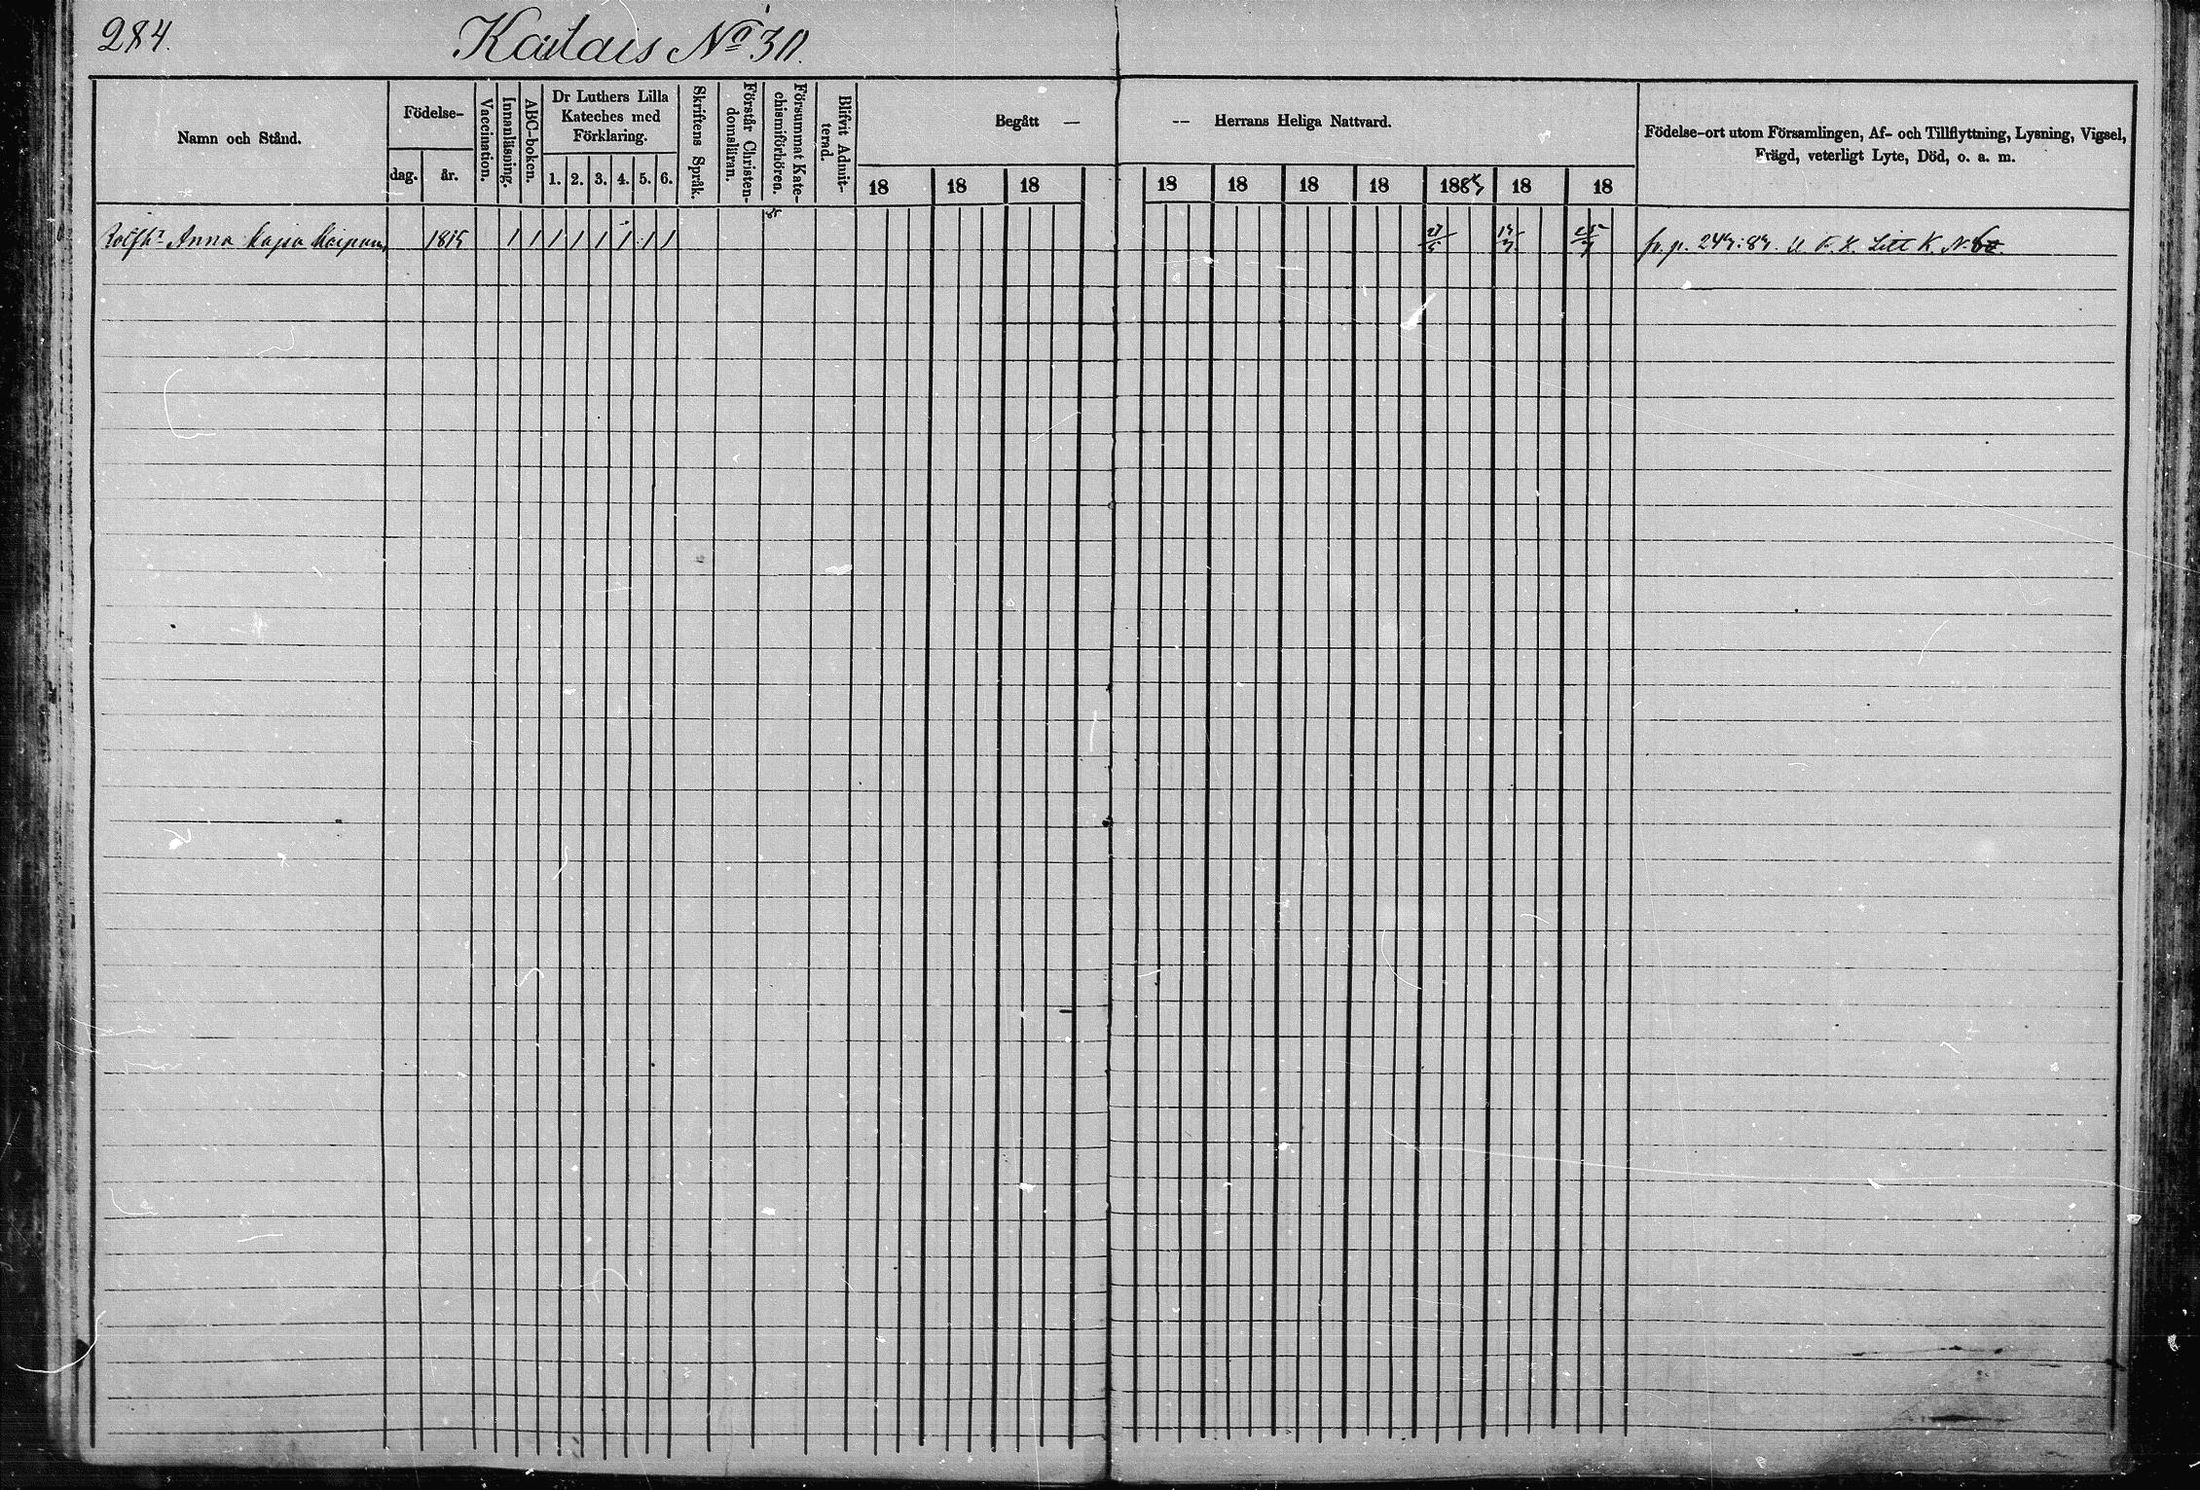 284.
Kailais No 30.
Namn och Stånd.
Födelse-
dag.
år.
Vaccination.
Innanläsning.
ABC-boken.
Dr Luthers Lilla
Kateches med
Förklaring.
1. 2. 3. 4. 5. 6.
Skriftens Språk.
Förstår Christen-
domsläran.
Försummat Kate-
chismiförhören.
Blifvit Admit-
terad.
Begått —
18 18 18
-- Herrans Heliga Nattvard.
18 18 18 18 1885 18 18
Födelse-ort utom Församlingen, Af- och Tillflyttning, Lysning, Vigsel,
Frägd, veterligt Lyte, Död, o. a. m.
Anna Kajsa 1815 1 1 1 1 1 1 1 1 27/5 fr. p. Litt K. N: